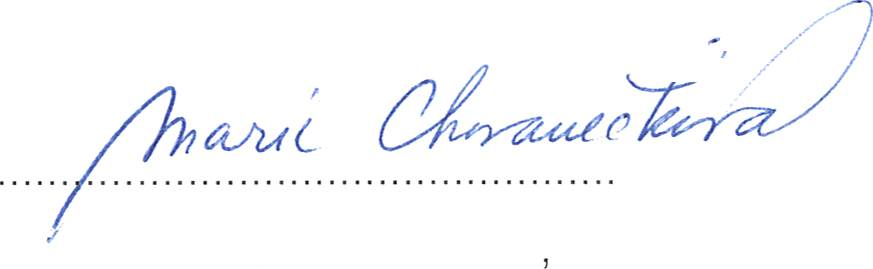 Marie Chovanečková
........................................................
,